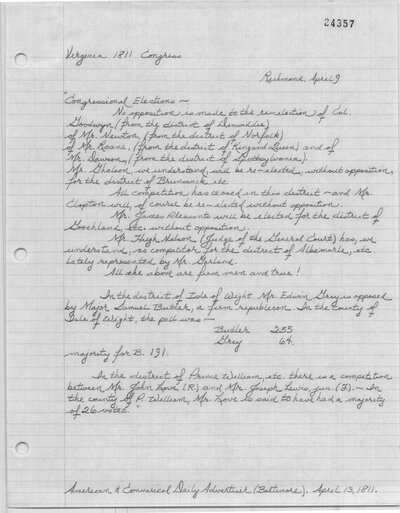 24357
Virginia 1811 Congress
Richmond, April 9
"Congressional Elections ~
No opposition is made to the re-election of Col.
Goodwyn (from the district of Dinwiddie)
of Mr. Newton, (from the district of Norfolk)
of Mr. Roane, (from the district of King and Queen) and of
Mr. Dawson, (from the district of Spottsylvania).
Mr. Gholson, we understand will be re-elected, without opposition,
for the district of Brunswick etc.
All competition has ceased in this district - and Mr.
Clopton will, of course be re-elected without opposition.
Mr. James Pleasants will be elected for the district of
Goochland, etc. without opposition.
Mr. Hugh Nelson (Judge of the General Court) has, we
understand, no competitor for the district of Albemarle, etc
lately represented by Mr. Garland.
All the above are firm men and true!
In the district of Isle of Wight Mr. Edwin Gray is opposed
by Major Samuel Butler, a firm republican. In the County of
Isle of Wight, the poll was -
Butler 255
Gray 64.
majority for B. 191.
In the district of Prince William, etc. there is a competition
between Mr. John Love (R.) and Mr. Joseph Lewis, jun. (F.). - In
the county of P. William, Mr. Love is said to have had a majority
of 26 votes."
American & Commerical Daily Advertiser (Baltimore). April 13, 1811.